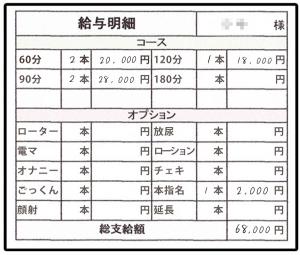 給与明細 様
コース
60分 2本 20,000円 120分 1本 18,000円
90分 2本 28,000円 180分 本 円
オプション
ローター 本 円 放尿 本 円
電マ 本 円 ローション 本 円
オナニー 本 円 チェキ 本 円
ごっくん 本 円 本指名 1本 2,000円
顔射 本 円 延長 本 円
総支給額 68,000円